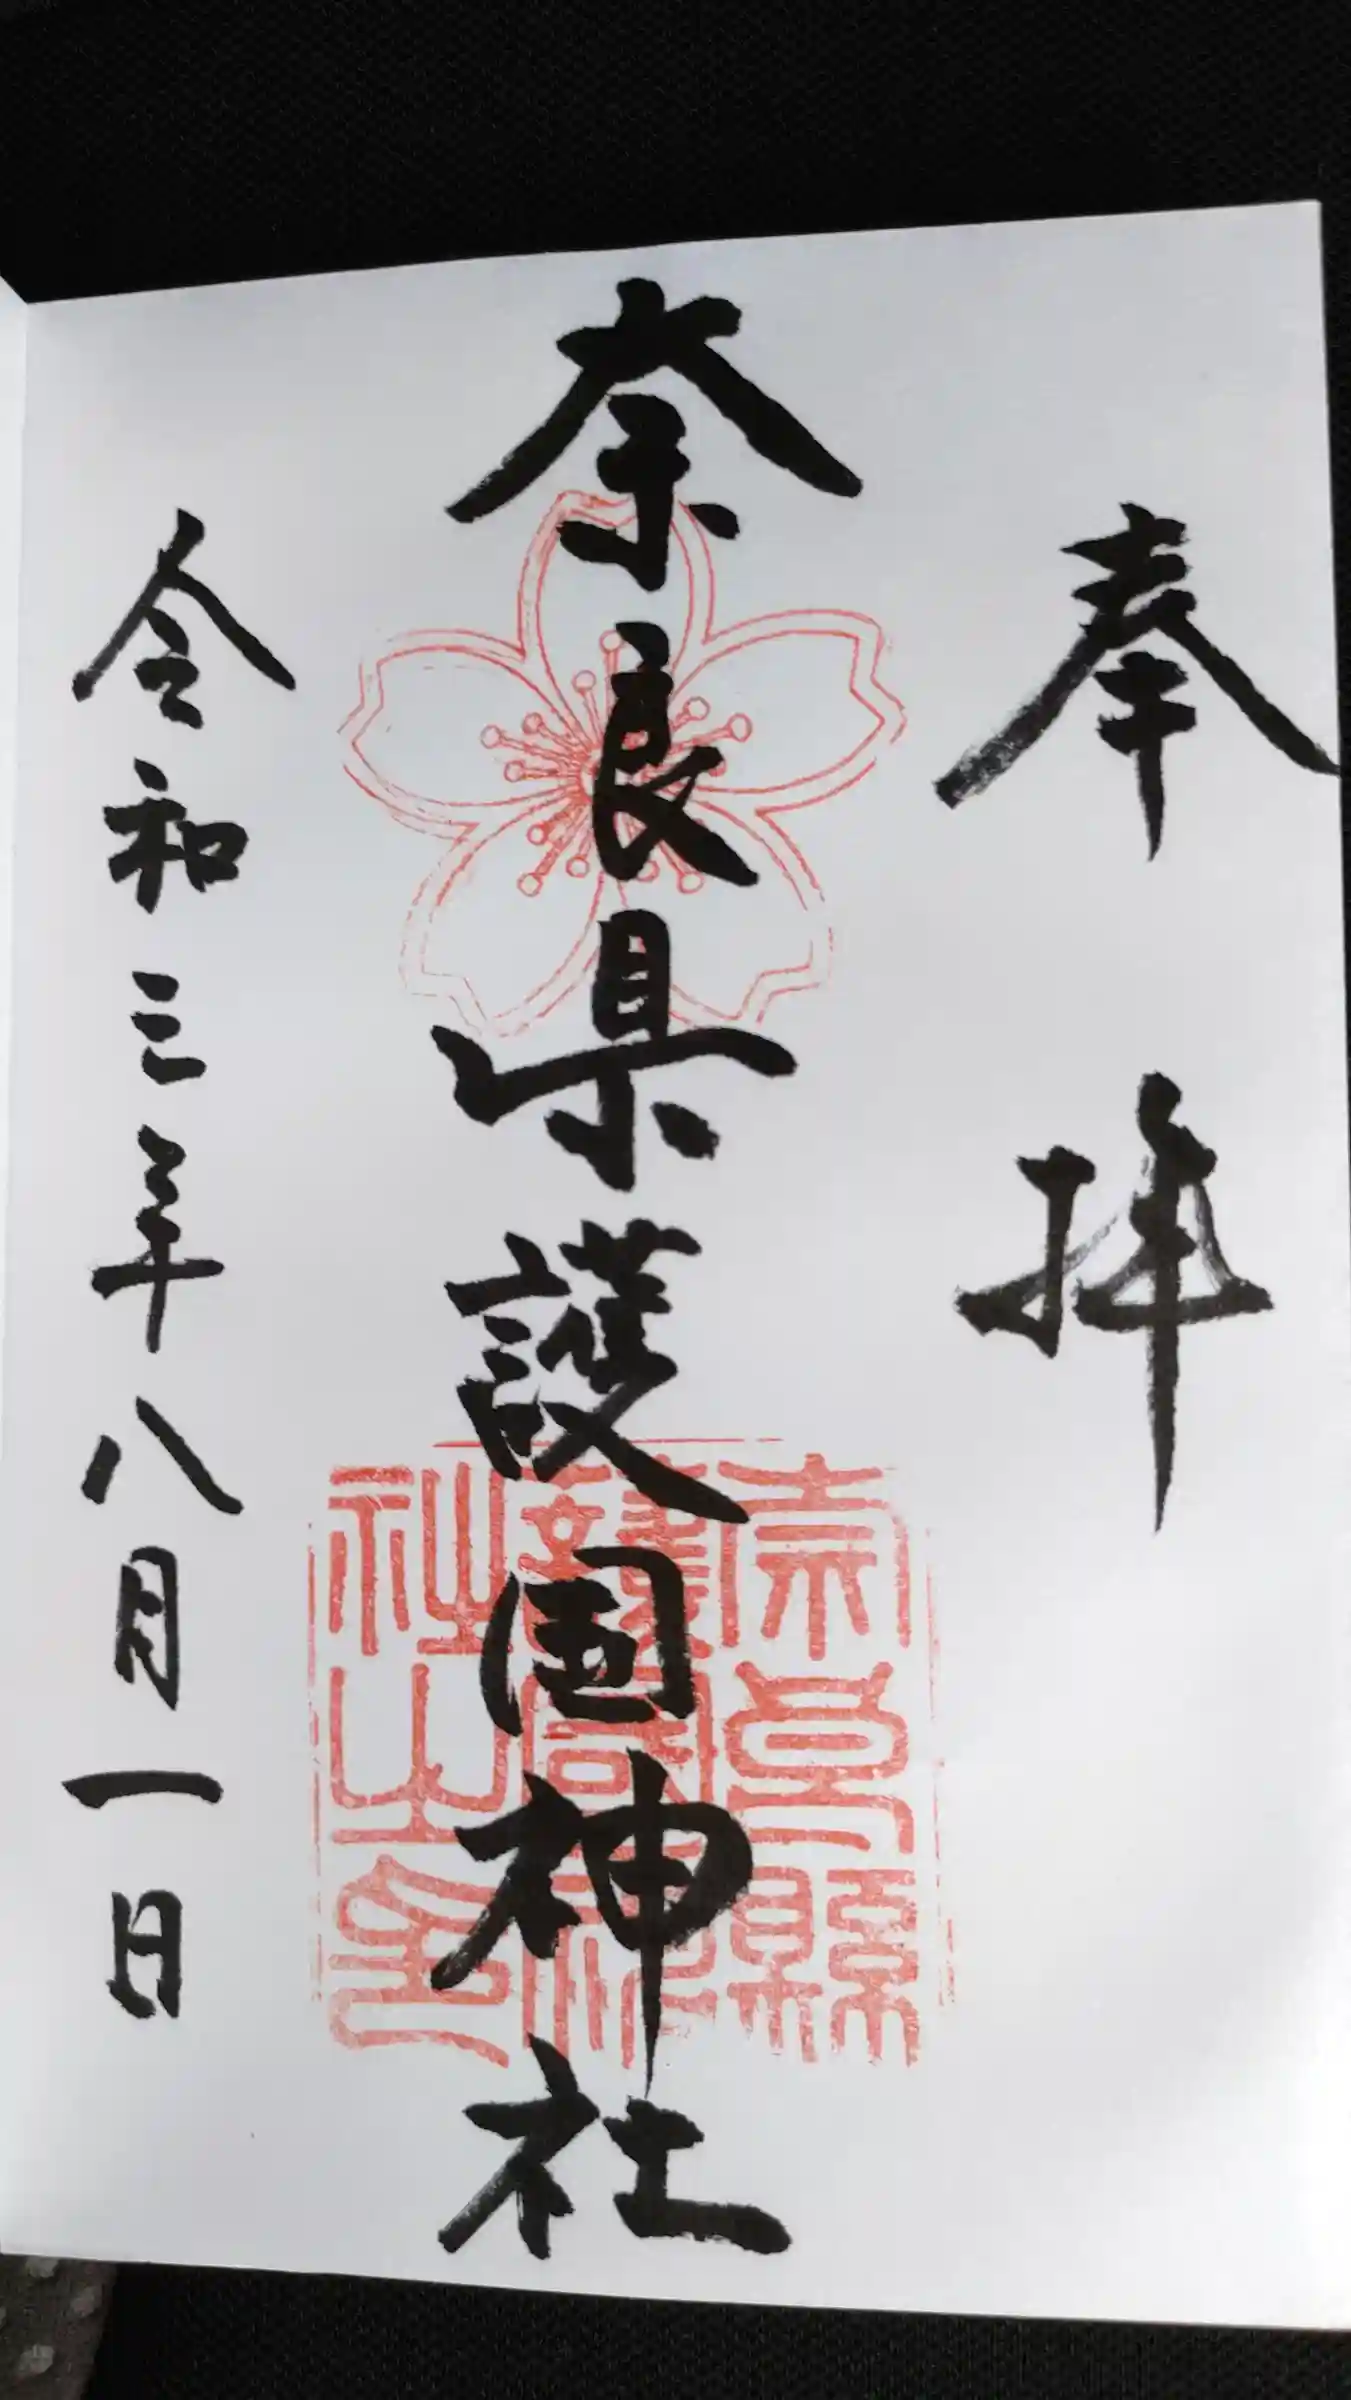 奉拝
奈良県護国神社
奈良縣
護國神
社之印
令和三年八月一日